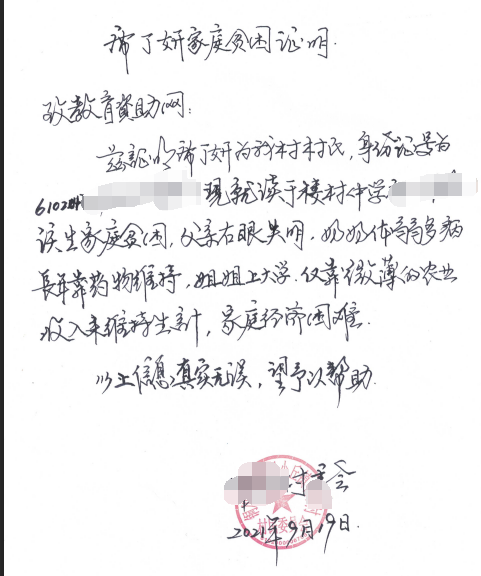 席了妍家庭贫困证明.
致教育資助网:
兹証明席了妍为我村村民,身份证号为
6102 现就读于楼村中学 ,
该生家庭贫困,父亲右眼失明,奶奶体弱多病
長年靠药物维持,姐姐上大学.仅靠微薄的农业
收入来维持生計,家庭经济困难.
以上信息真实无误,望予以帮助.
村委会
2021年9月19日.